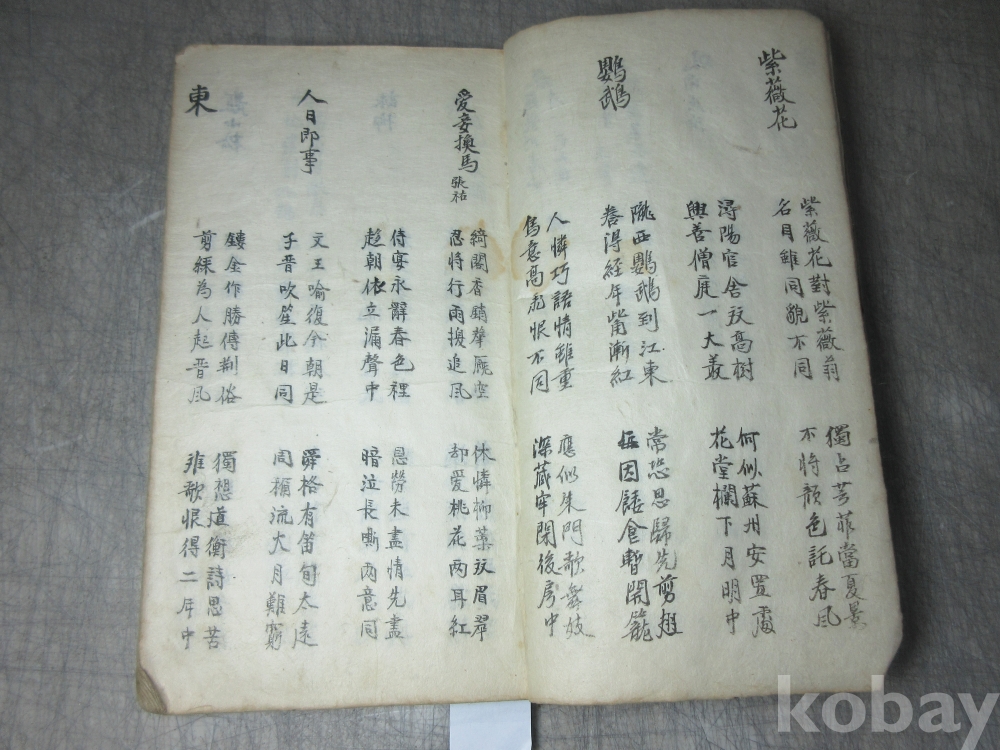 紫薇花
紫薇花對紫薇翁
名目雖同貌不同
獨占芳菲當夏景
不將顔色託春風
潯陽官舍双高樹
興善僧庭一大叢
何似蘇州安置處
花堂欄下月明中
鸚鵡
隴西鸚鵡到江東
養得經年觜漸紅
常恐思歸先剪翅
每因餧食暫開籠
人憐巧語情雖重
鳥意高飛恨不同
應似朱門歌舞妓
深藏牢閉後房中
愛妾換馬 張祐
綺閣香銷華厩空
忍將行雨換追風
休憐柳葉双眉翠
却愛桃花兩耳紅
侍宴永辭春色裡
趁朝休立漏聲中
恩勞未盡情先盡
暗泣長嘶兩意同
人日即事
文王喻復今朝是
子晋吹笙此日同
舜格有苗旬太遠
周稱流火月難窮
鏤金作勝傳荊俗
剪綵為人起晋風
獨想道衡詩思苦
離歌恨得二年中
東
kobay